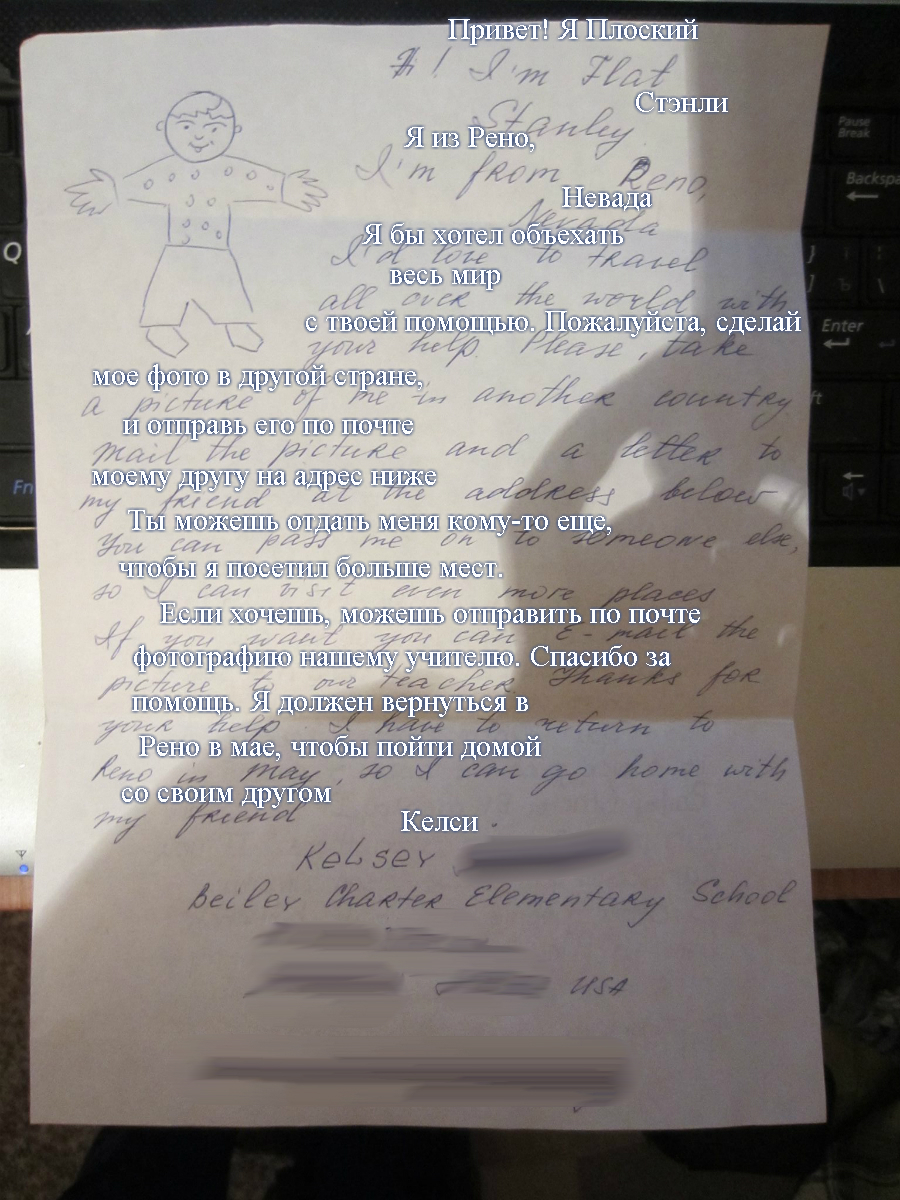 Привет! Я Плоский
Hi! I'm Flat
Стэнли
Stanley
Я из Рено,
I'm from Reno,
Невада
Nevada
Я бы хотел объехать
I'd love to travel
весь мир
all over the world with
с твоей помощью. Пожалуйста, сделай
your help. Please, take
мое фото в другой стране,
a picture of me in another country
и отправь его по почте
mail the picture and a letter to
моему другу на адрес ниже
my friend at the address below
Ты можешь отдать меня кому-то еще,
You can pass me on to someone else,
чтобы я посетил больше мест.
so I can visit even more places
Если хочешь, можешь отправить по почте
If you want you can E-mail the
фотографию нашему учителю. Спасибо за
picture to our teacher. Thanks for
помощь. Я должен вернуться в
your help I have to return to
Рено в мае, чтобы пойти домой
Reno in May, so I can go home with
со своим другом
my friend
Келси
Kelsey
Beiley Charter Elementary School
USA
Pause
Break
Backspa
Enter
Q
Fn